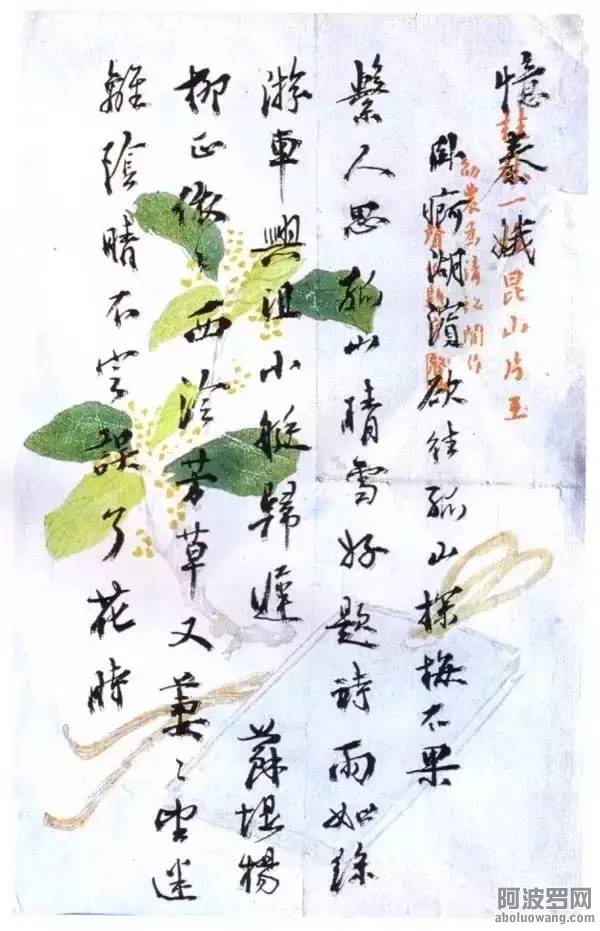 憶秦娥
臥痾湖濱欲往孤山探梅不果
縈人思孤山晴雪好題詩雨如絲
游車興沮小艇歸遲 蘇堤楊
柳正依〻西泠芳草又萋〻望迷
離陰晴不定誤了花時
桂林一枝昆山片玉
阿波罗网
aboluowang.com